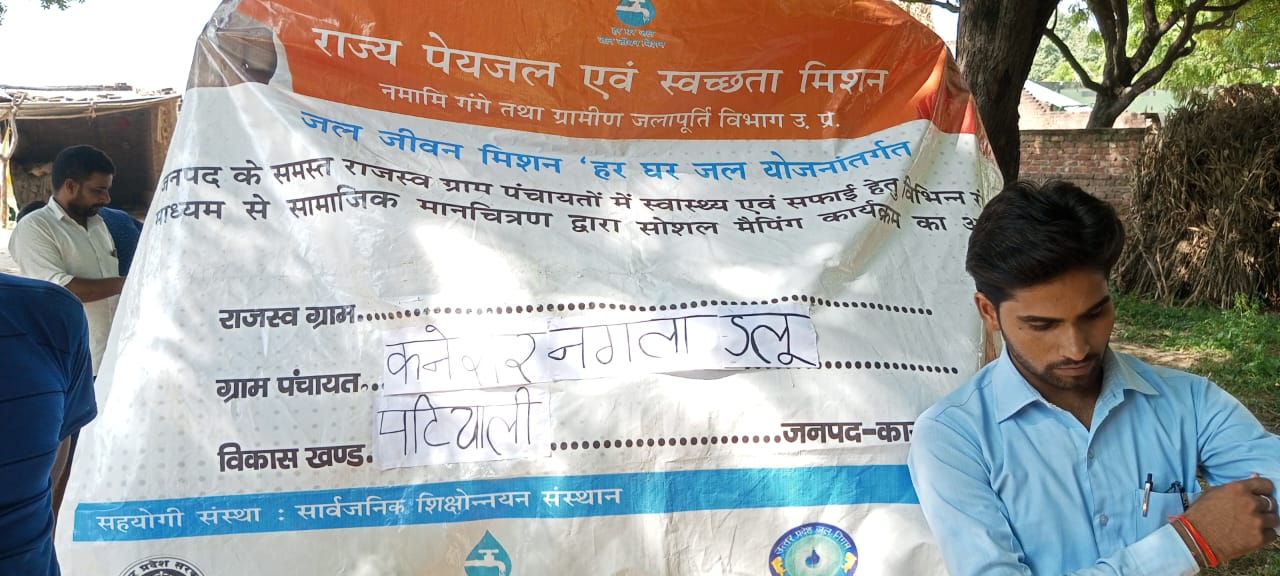 हर घर जल
जल जीवन मिशन
राज्य पेयजल एवं स्वच्छता मिशन
नमामि गंगे तथा ग्रामीण जलापूर्ति विभाग उ. प्र.
जल जीवन मिशन 'हर घर जल योजनांतर्गत
जनपद के समस्त राजस्व ग्राम पंचायतों में स्वास्थ्य एवं सफाई हेतु विभिन्न
माध्यम से सामाजिक मानचित्रण द्वारा सोशल मैपिंग कार्यक्रम का
राजस्व ग्राम
ग्राम पंचायत नगला डलू
पटियाली
विकास खण्ड जनपद-का
सहयोगी संस्था : सार्वजनिक शिक्षोन्नयन संस्थान
उत्तर प्रदेश जल निगम